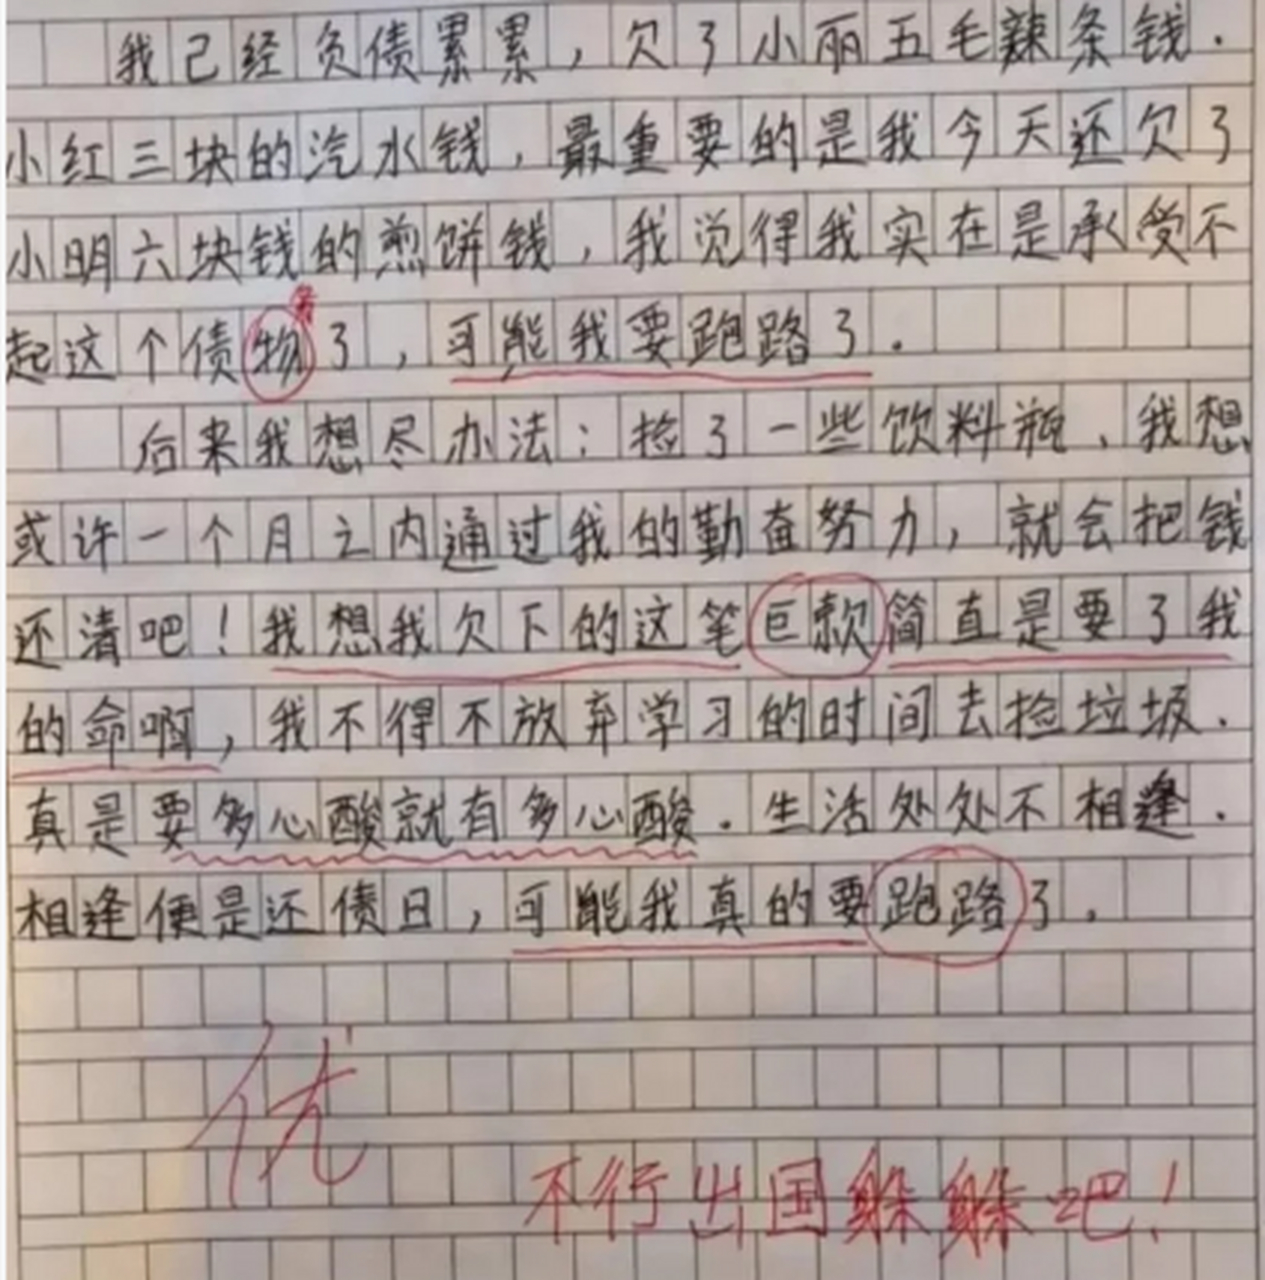 我己经负债累累，欠了小丽五毛辣条钱.
小红三块的汽水钱，最重要的是我今天还欠了
小明六块钱的煎饼钱，我觉得我实在是承受不
起这个债物了，可能我要跑路了.
务
后来我想尽办法：捡了一些饮料瓶、我想
或许一个月之内通过我的勤奋努力，就会把钱
还清吧！我想我欠下的这笔巨款简直是要了我
的命啊，我不得不放弃学习的时间去捡垃圾.
真是要多心酸就有多心酸.生活处处不相逢.
相逢便是还债日，可能我真的要跑路了.
优
不行出国躲躲吧！